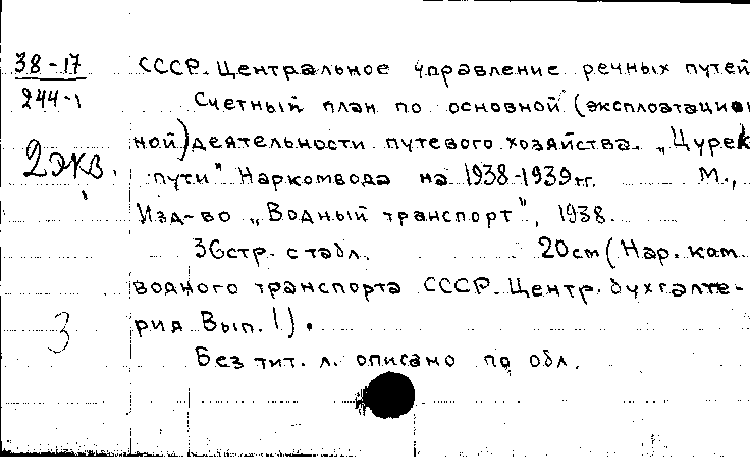 38-17
244-1
2 экв.
3
СССР. Центральное управление речных путей
Счетный план по основной (эксплоатацион
ной) деятельности путевого хозяйства. „Цурек
пути" Наркомвода на 1938-1939 гг. М.,
Изд-во „Водный транспорт", 1938.
36 стр. с табл. 20 см (Нар. ком.
водного транспорта СССР. Центр. бухгалте-
рия Вып. 1).
Без тит. л. описано по обл.